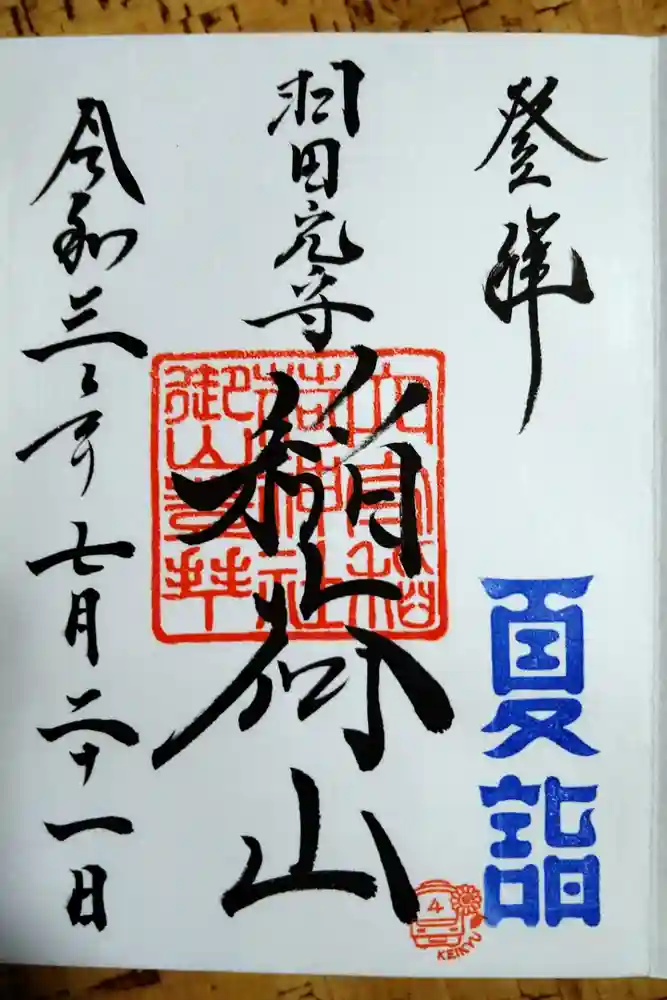 登拝
夏詣
羽田穴守
稲荷山
穴守稲
荷神社
御山参拝
令和三年七月二十一日
4
KEIKYU